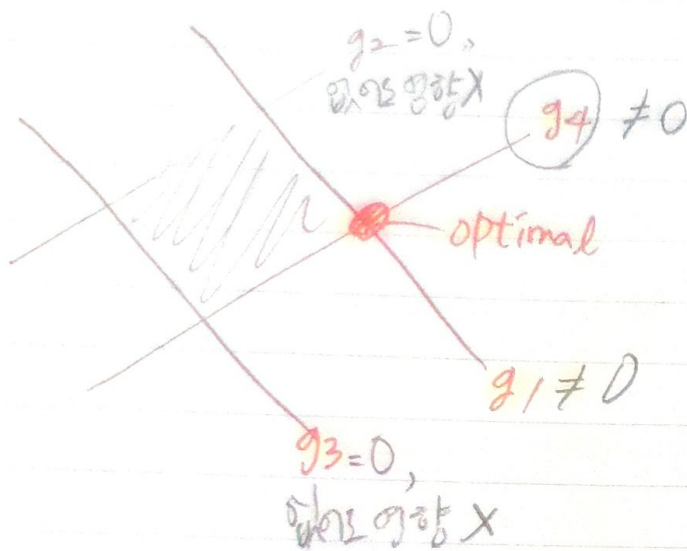 g2=0,
없어도 영향X
g4 ≠0
optimal
g1≠0
g3=0,
없어도 영향 X